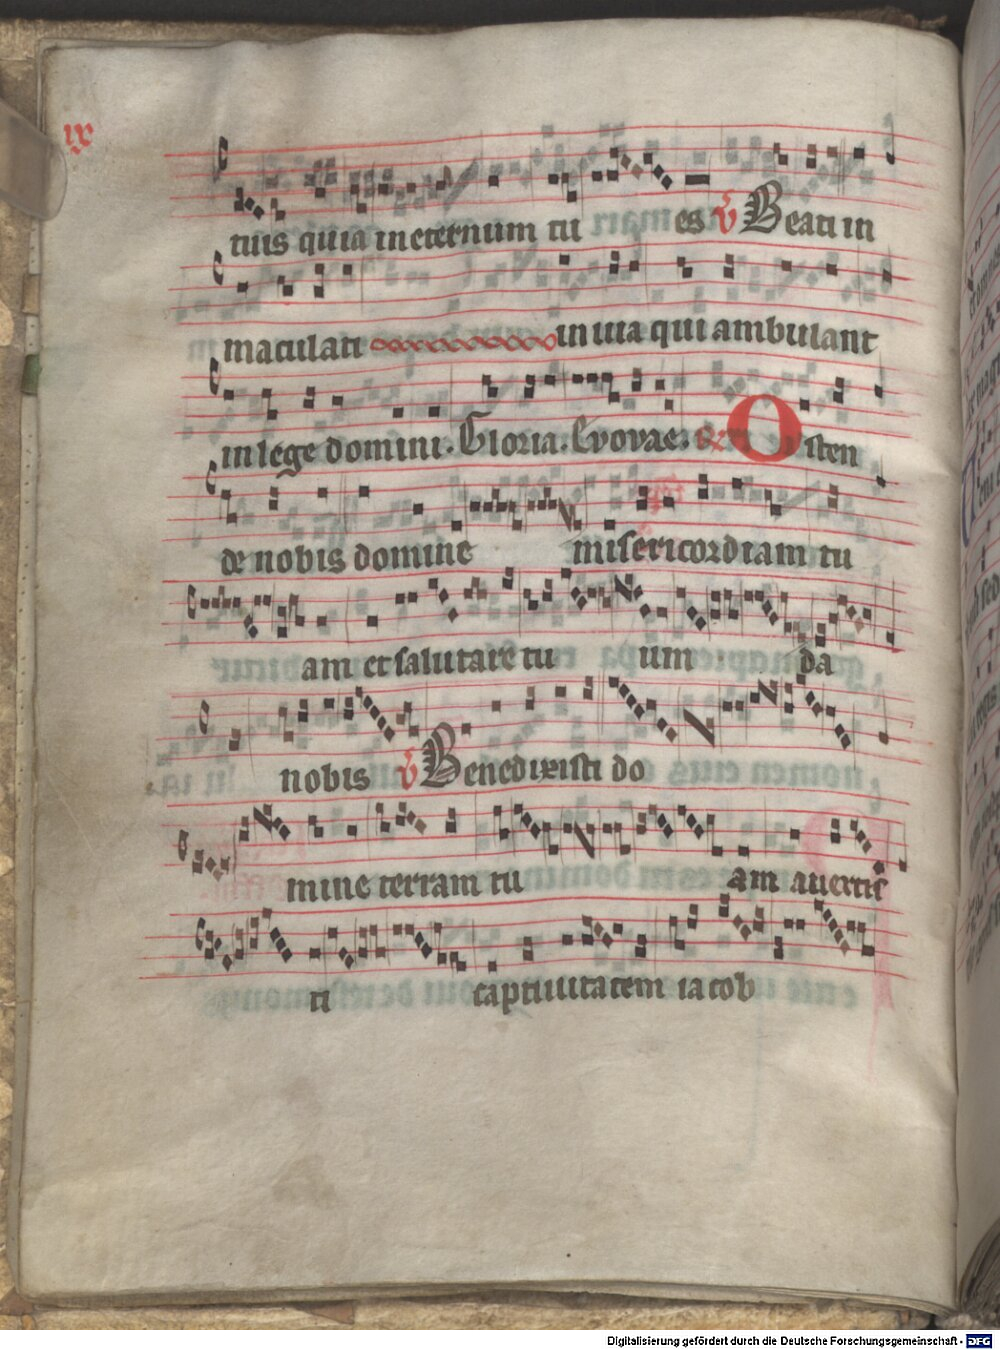 ix
tuis quia in eternum tu es ℣ Beati in
maculati in uia qui ambulant
in lege domini. Gloria. Evovae. Osten
de nobis domine misericordiam tu
am et salutare tu um da
nobis ℣ Benedixisti do
mine terram tu am auertis
ti captiuitatem iacob
Digitalisierung gefördert durch die Deutsche Forschungsgemeinschaft - DFG